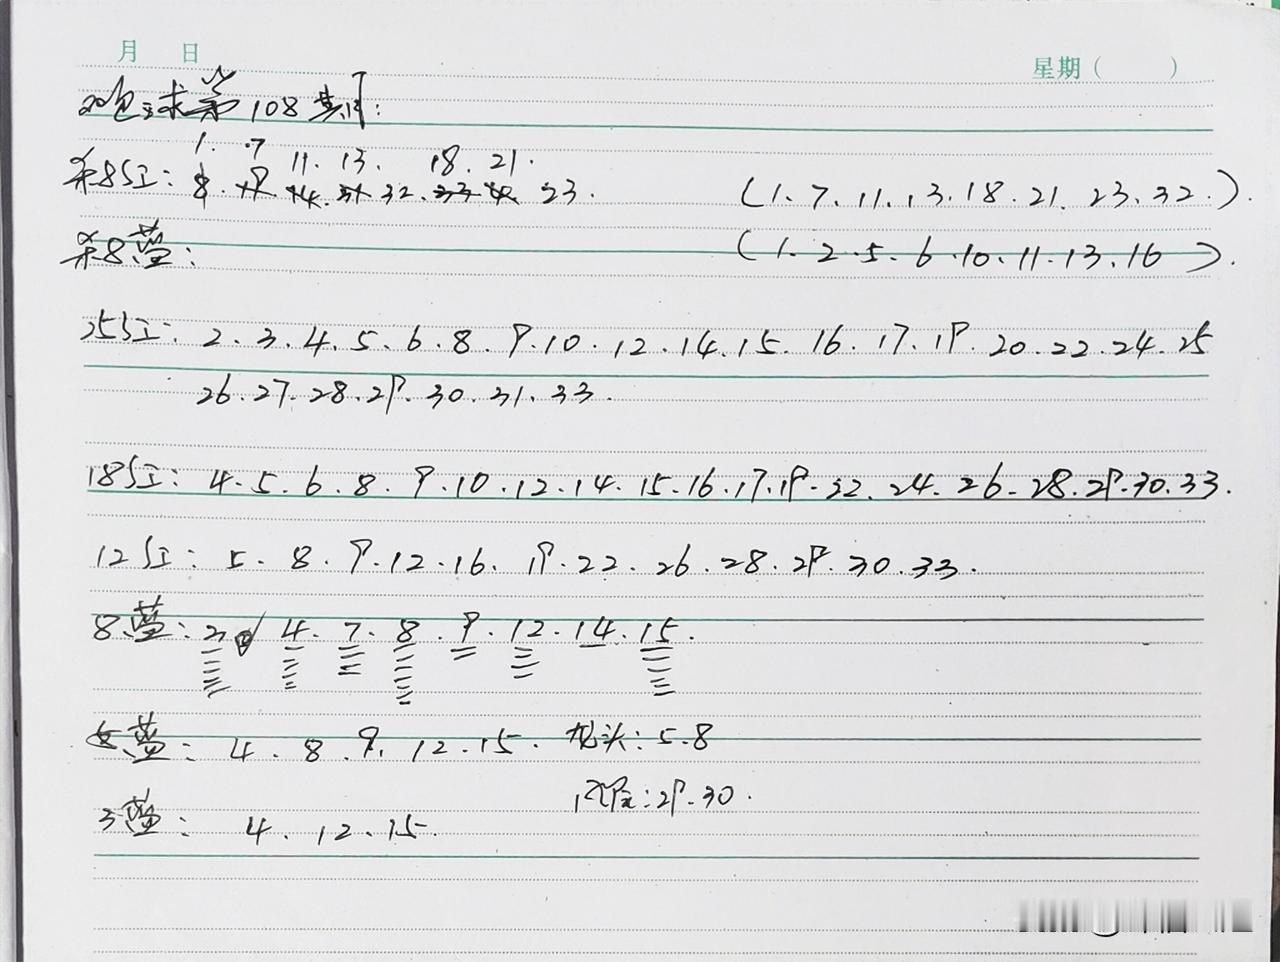 月 日
星期( )
双色球第108期:
1. 7 11. 13. 18. 21.
杀8红: 32. 23. (1. 7. 11. 13. 18. 21. 23. 32.).
杀8蓝: (1. 2. 5. 6. 10. 11. 13. 16).
25红: 2. 3. 4. 5. 6. 8. 9. 10. 12. 14. 15. 16. 17. 19. 20. 22. 24. 25
26. 27. 28. 29. 30. 31. 33.
18红: 4. 5. 6. 8. 9. 10. 12. 14. 15. 16. 17. 19. 22. 24. 26. 28. 29. 30. 33.
12红: 5. 8. 9. 12. 16. 19. 22. 26. 28. 29. 30. 33.
8蓝: 3. 4. 7. 8. 9. 12. 14. 15.
5蓝: 4. 8. 9. 12. 15. 龙头: 5. 8
凤尾: 29. 30.
3蓝: 4. 12. 15.